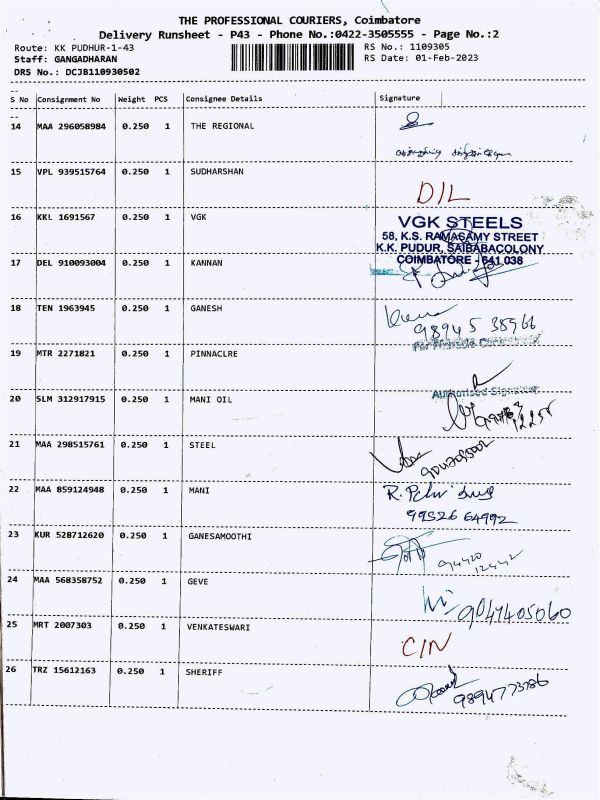 THE PROFESSIONAL COURIERS, Coimbatore
Delivery Runsheet - P43 - Phone No.:0422-3505555 - Page No.:2
Route: KK PUDHUR-1-43
RS No.: 1109305
Staff: GANGADHARAN
RS Date: 01-Feb-2023
DRS No.: DCJB110930502
S No Consignment No Weight PCS Consignee Details Signature
14 MAA 296058984 0.250 1 THE REGIONAL
15 VPL 939515764 0.250 1 SUDHARSHAN
D/L
16 KKL 1691567 0.250 1 VGK
VGK STEELS
58, K.S. RAMASAMY STREET
K.K. PUDUR, SAIBABACOLONY
COIMBATORE - 641 038
17 DEL 910093004 0.250 1 KANNAN
18 TEN 1963945 0.250 1 GANESH
98945 38966
19 MTR 2271821 0.250 1 PINNACLRE
Authorised Signatory
20 SLM 312917915 0.250 1 MANI OIL
21 MAA 298515761 0.250 1 STEEL
22 MAA 859124948 0.250 1 MANI
99526 64992
23 KUR 528712620 0.250 1 GANESAMOOTHI
94420
12442
24 MAA 568358752 0.250 1 GEVE
9047405060
25 MRT 2007303 0.250 1 VENKATESWARI
C/N
26 TRZ 15612163 0.250 1 SHERIFF
9894773786